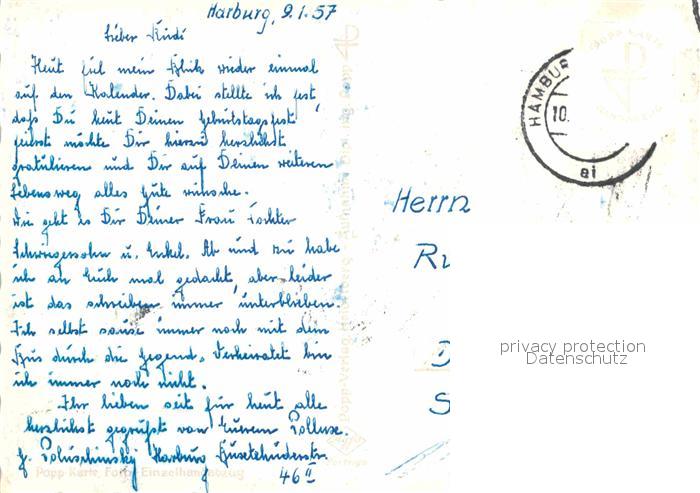 Harburg, 9.1.57
Lieber Rudi
Heut fiel mein Blick wieder einmal
auf den Kalender. Dabei stellte ich fest,
daß Du heut Deinen Geburtstagsfest
feierst möchte Dir hierzu herzlichst
gratulieren und Dir auf Deinen weiteren
Lebensweg alles Gute wünsche.
Wie geht es Dir Deiner Frau Tochter
Schwiegersohn u. Enkel. Ab und zu habe
ich an Euch mal gedacht, aber leider
ist das schreiben immer unterblieben.
Ich selbst sause immer noch mit dem
Bus durch die Gegend. Verheiratet bin
ich immer noch nicht.
Ihr lieben seit für heut alle
herzlichst gegrüßt von Eurem
Harburg Buxtehuderstr.
46 II
Popp-Karte, Einzelhandabzug
Popp-Verlag
HAMBUR
10.
ai
POPP KARTE
Herrn
Ru
D
S
privacy protection
Datenschutz